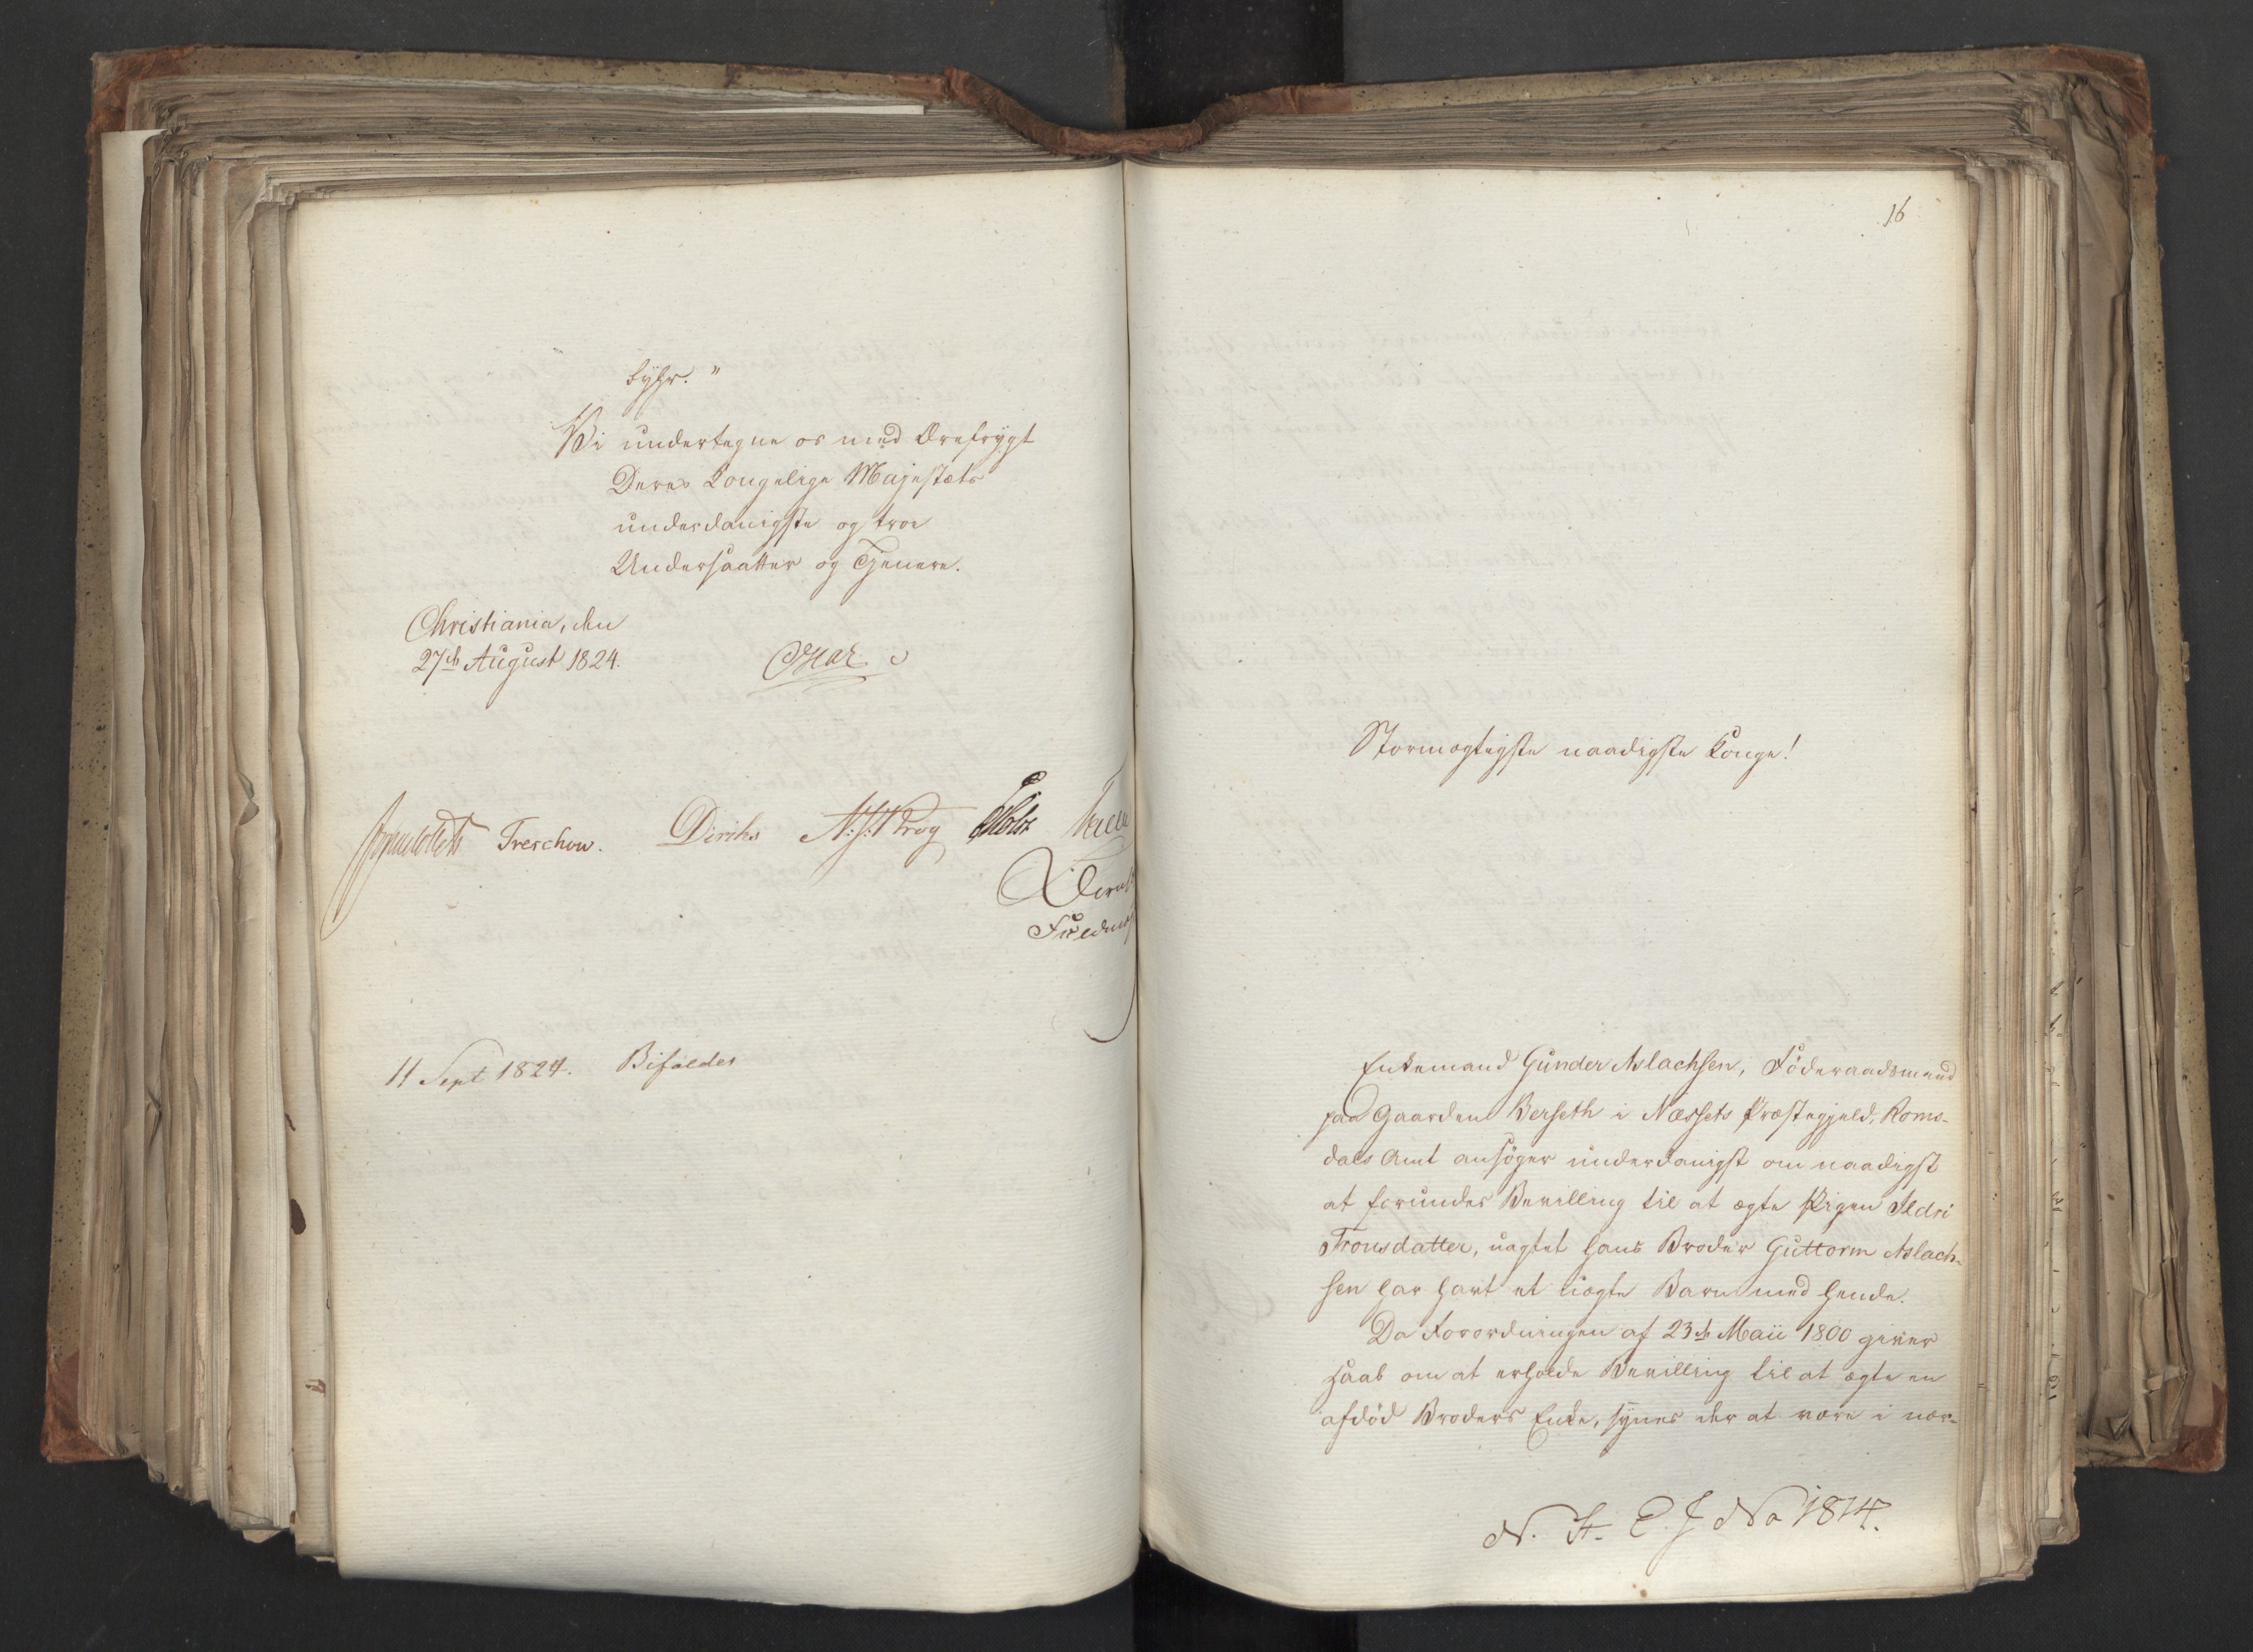 byhr."
Vi undertegne os med Ærefrygt
Deres Kongelige Majestæts
underdanigste og troe
Undersaatter og Tjenere.
Christiania, den
27de August 1824.
Oscar
Treschow. Diriks
11 Sept 1824. Bifaldes
16
Stormægtigste naadigste Konge!
Enkemand Gunder Aslachsen, Föderaadsmand
paa Gaarden Berseth i Næssets Præstegjeld, Roms-
dals Amt ansöger underdanigst om naadigst
at forundes Bevilling til at ægte Pigen Ildri
Tronsdatter, uagtet hans Broder Guttorm Aslach-
sen har havt et uægte Barn med hende.
Da Forordningen af 23de Maii 1800 giver
Haab om at erholde Bevilling til at ægte en
afdöd Broders Enke, synes der at være i nær-
N. St. E. J No 1814.